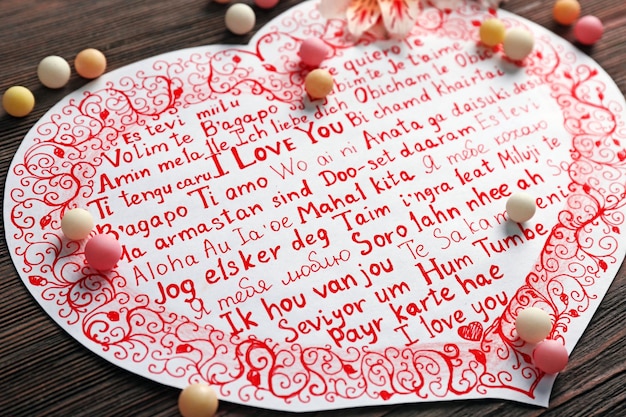 quiero Te
Es tevi milu bim te Je t'aime
Volim te B'agapo Obicham te
Amin mela lle Ich liebe dich Bi chamd khairtai
Ti tengu caru I Love You Anata ga daisuki des
B'agapo Ti amo Wo ai ni Doo-set daaram Estes
Ma armastan sind Mahal kita Я тебе кохаю te
Aloha Au Ia 'oe Taim i'ngra leat Miluji te
Jog elsker deg Soro lahn nhee ah
Я тебе люблю Te Sakam
Ik hou van jou Hum Tumbe
Seviyor um
Payr karte hae
I love you